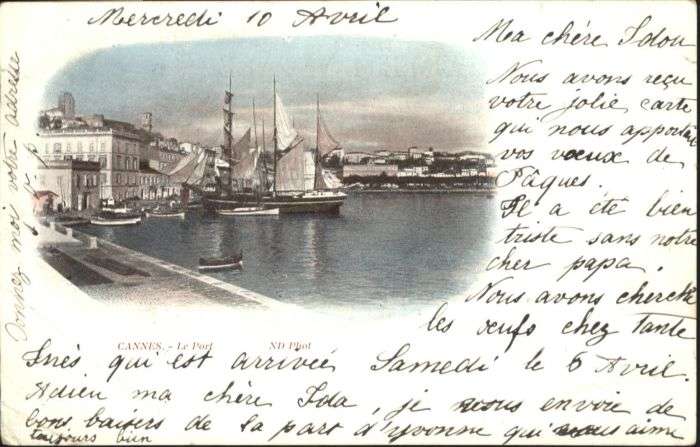 Mercredi 10 Avril
Ma chère Idou
Nous avons reçu
votre jolie carte
qui nous apporte
vos vœux de
Pâques.
Il a été bien
triste sans notre
cher papa.
Nous avons cherché
les œufs chez tante
CANNES. - Le Port
ND Phot
Inès qui est arrivée Samedi le 6 Avril.
Adieu ma chère Ida, je vous envoie de
bons baisers de la part d'yvonne qui vous aime
toujours bien
Donnez moi votre adresse